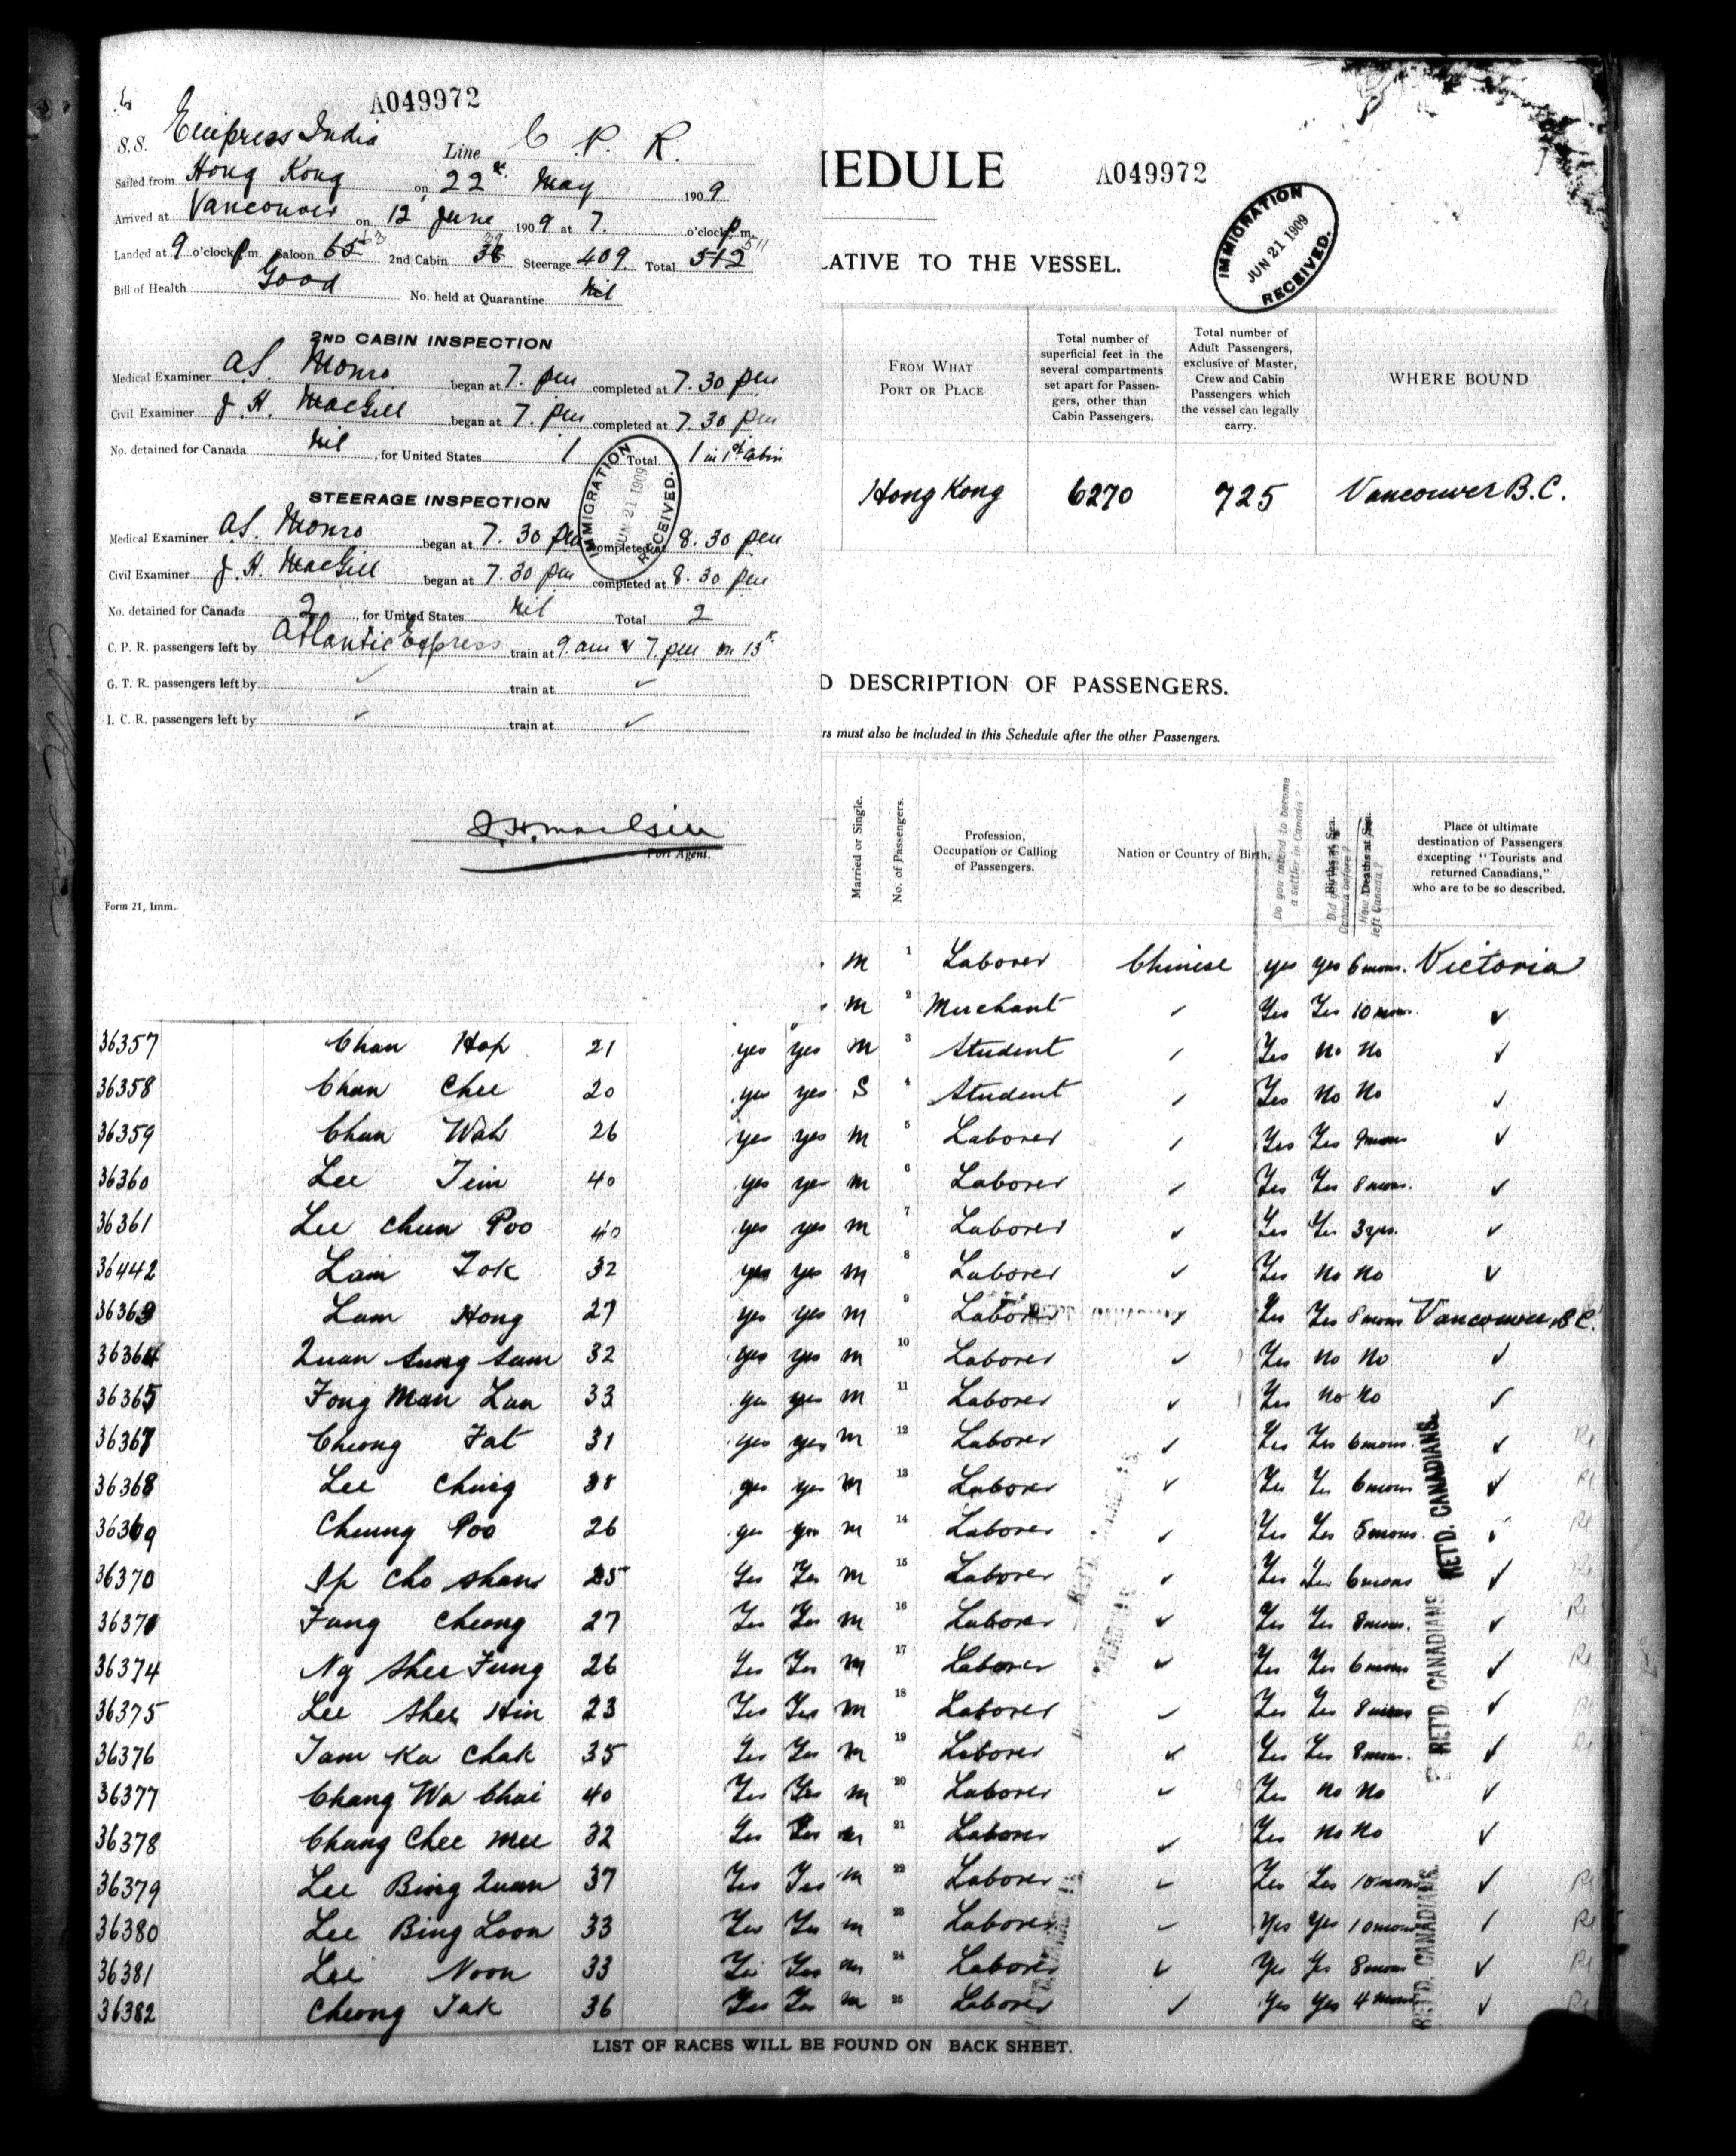 A049972
S.S. Empress India Line C. P. R.
Sailed from Hong Kong on 22nd May 1909
Arrived at Vancouver on 12 June 1909 at 7. o'clock p.m.
Landed at 9 o'clock p.m. Saloon 65 63 2nd Cabin 38 39 Steerage 409 Total 512 511
Bill of Health Good No. held at Quarantine Nil
2ND CABIN INSPECTION
Medical Examiner A.S. Monro began at 7. pm completed at 7.30 pm
Civil Examiner J. H. MacGill began at 7. pm completed at 7.30 pm
No. detained for Canada Nil, for United States 1 Total 1 in 1st Cabin
STEERAGE INSPECTION
Medical Examiner A.S. Monro began at 7.30 pm completed at 8.30 pm
Civil Examiner J. H. MacGill began at 7.30 pm completed at 8.30 pm
No. detained for Canada 2, for United States Nil Total 2
C. P. R. passengers left by Atlantic Express train at 9.am & 7.pm on 13th
G. T. R. passengers left by ✓ train at ✓
I. C. R. passengers left by ✓ train at ✓
IMMIGRATION
JUN 21 1909
RECEIVED.
Port Agent.
Form 21, Imm.
HEDULE A049972
IMMIGRATION
JUN 21 1909
RECEIVED.
LATIVE TO THE VESSEL.
FROM WHAT PORT OR PLACE
Total number of superficial feet in the several compartments set apart for Passengers, other than Cabin Passengers.
Total number of Adult Passengers, exclusive of Master, Crew and Cabin Passengers which the vessel can legally carry.
WHERE BOUND
Hong Kong 6270 725 Vancouver B.C.
D DESCRIPTION OF PASSENGERS.
rs must also be included in this Schedule after the other Passengers.
Married or Single.
No. of Passengers.
Profession, Occupation or Calling of Passengers.
Nation or Country of Birth.
Do you intend to become a settler in Canada?
Births at Sea.
Deaths at Sea.
Place of ultimate destination of Passengers excepting "Tourists and returned Canadians," who are to be so described.
m 1 Laborer Chinese yes yes 6 mons. Victoria
m 2 Merchant ✓ Yes Yes 10 mons. ✓
36357 Chan Hop 21 yes yes m 3 Student ✓ Yes No No ✓
36358 Chan Chee 20 yes yes S 4 Student ✓ Yes No No ✓
36359 Chan Wah 26 yes yes m 5 Laborer ✓ Yes Yes 9 mons ✓
36360 Lee Tim 40 yes yes m 6 Laborer ✓ Yes Yes 8 mons. ✓
36361 Lee Chun Poo 40 yes yes m 7 Laborer ✓ Yes Yes 3 yrs. ✓
36442 Lam Tok 32 yes yes m 8 Laborer ✓ Yes No No ✓
36363 Lam Hong 27 yes yes m 9 Laborer ✓ Yes Yes 8 mons Vancouver, B.C.
36364 Quan Sung Sam 32 yes yes m 10 Laborer ✓ Yes No No ✓
36365 Fong Man Lun 33 yes yes m 11 Laborer ✓ Yes No No ✓
36367 Cheong Fat 31 yes yes m 12 Laborer ✓ Yes Yes 6 mons. ✓
36368 Lee Ching 38 yes yes m 13 Laborer ✓ Yes Yes 6 mons ✓
36369 Cheung Poo 26 yes yes m 14 Laborer ✓ Yes Yes 5 mons. ✓
36370 Ip Cho Shan 25 Yes Yes m 15 Laborer ✓ Yes Yes 6 mons ✓
36371 Fung Cheong 27 Yes Yes m 16 Laborer ✓ Yes Yes 8 mons. ✓
36374 Ng Shee Fung 26 Yes Yes m 17 Laborer ✓ Yes Yes 6 mons ✓
36375 Lee Shee Hin 23 Yes Yes m 18 Laborer ✓ Yes Yes 8 mons ✓
36376 Tam Ka Chak 35 Yes Yes m 19 Laborer ✓ Yes Yes 8 mons. ✓
36377 Chang Wa Chai 40 Yes Yes m 20 Laborer ✓ Yes No No ✓
36378 Chang Chee Mee 32 Yes Yes m 21 Laborer ✓ Yes No No ✓
36379 Lee Bing Quan 37 Yes Yes m 22 Laborer ✓ Yes Yes 10 mons ✓
36380 Lee Bing Loon 33 Yes Yes m 23 Laborer ✓ Yes Yes 10 mons ✓
36381 Lee Noon 33 Yes Yes m 24 Laborer ✓ Yes Yes 8 mons ✓
36382 Cheong Tak 36 Yes Yes m 25 Laborer ✓ Yes Yes 4 mons ✓
RET'D. CANADIANS.
RET'D. CANADIANS
RET'D. CANADIANS.
LIST OF RACES WILL BE FOUND ON BACK SHEET.